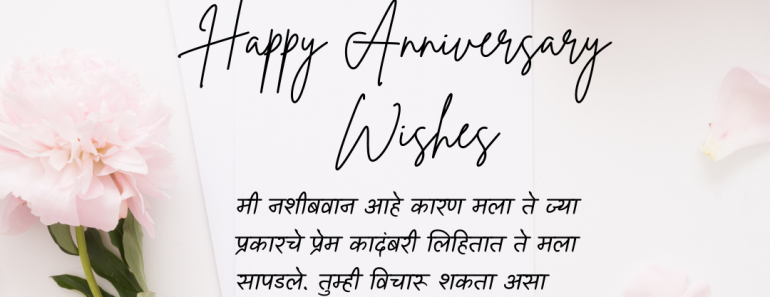 Happy Anniversary
Wishes
मी नशीबवान आहे कारण मला ते ज्या
प्रकारचे प्रेम कादंबरी लिहितात ते मला
सापडले. तुम्ही विचारू शकता असा